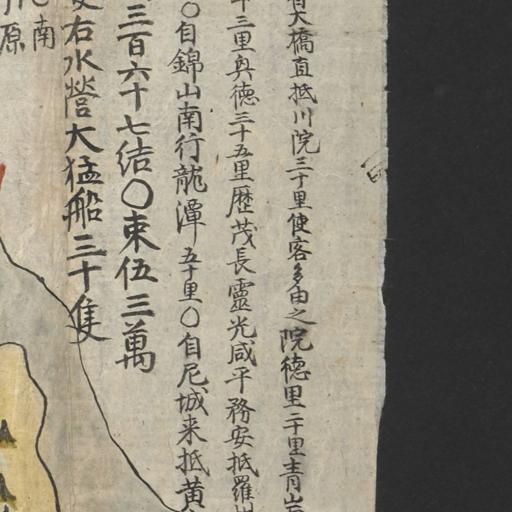 大橋直抵川院三十里使客多由之院德里二十里青岩
三里興德三十五里歷茂長靈光咸平務安抵羅州
〇自錦山南行龍潭五十里〇自尼城来抵黄
三百六十七結〇束伍三萬
右水營大猛船三十隻
南
原